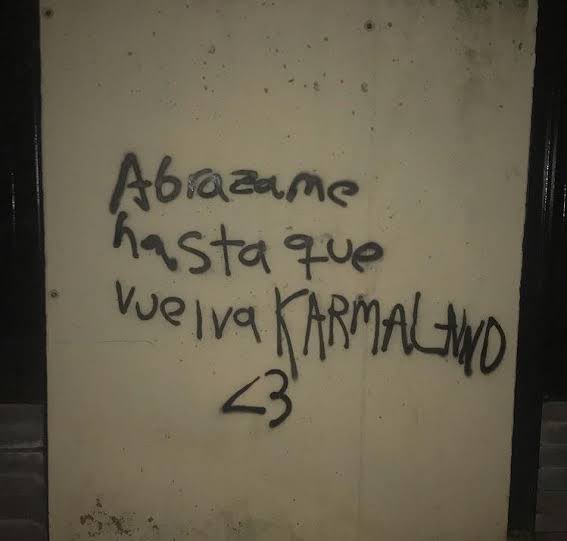 Abrazame
hasta que
vuelva KARMALANND
<3